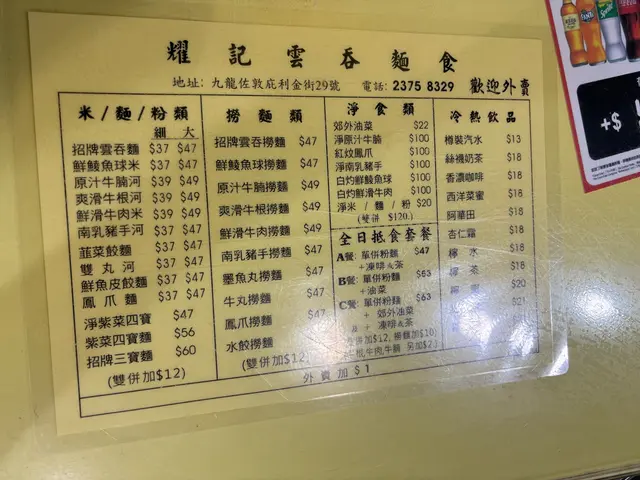 耀記雲吞麵食
地址: 九龍佐敦庇利金街29號 電話: 2375 8329 歡迎外賣
米/麵/粉類
細 大
招牌雲吞麵 $37 $47
鮮鯪魚球米 $37 $47
原汁牛腩河 $39 $49
爽滑牛根河 $39 $49
鮮滑牛肉米 $39 $49
南乳豬手河 $37 $47
韮菜餃麵 $37 $47
雙丸河 $37 $47
鮮魚皮餃麵 $37 $47
鳳爪麵 $37 $47
淨紫菜四寶 $47
紫菜四寶麵 $56
招牌三寶麵 $60
(雙併加$12)
撈麵類
招牌雲吞撈麵 $47
鮮鯪魚球撈麵 $47
原汁牛腩撈麵 $49
爽滑牛根撈麵 $49
鮮滑牛肉撈麵 $49
南乳豬手撈麵 $47
墨魚丸撈麵 $47
牛丸撈麵 $47
鳳爪撈麵 $47
水餃撈麵 $47
(雙併加$12)
淨食類
郊外油菜 $22
淨原汁牛腩 $100
紅炆鳳爪 $100
淨南乳豬手 $100
白灼鮮鯪魚球 $100
白灼鮮滑牛肉 $100
淨米/麵/粉 $20
(雙併 $120.)
全日抵食套餐
A餐: 單併粉麵 $47
+凍啡&茶
B餐: 單併粉麵 $63
+油菜
C餐: 單併粉麵 $63
+ 郊外油菜
+ 凍啡&茶
併加$12, 撈麵加$10)
根,牛肉,牛腩 另加$2)
冷熱飲品
樽裝汽水 $13
絲襪奶茶 $18
香濃咖啡 $18
西洋菜蜜 $18
阿華田 $18
杏仁霜 $18
檸水 $18
檸茶 $18
檸 $20
$21
外賣加$1
+$